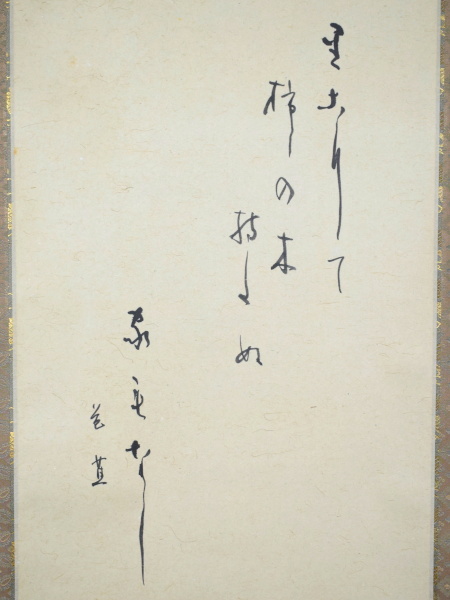 里古りて
柿の木
持たぬ
家もなし
芭蕉